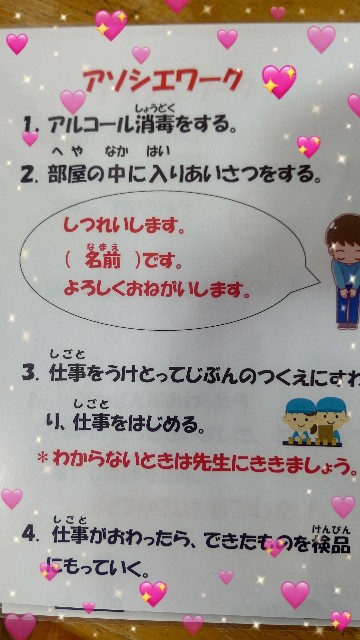 アソシエワーク
しょうどく
1. アルコール消毒をする。
へや なか はい
2. 部屋の中に入りあいさつをする。
しつれいします。
なまえ
( 名前 )です。
よろしくおねがいします。
しごと
3. 仕事をうけとってじぶんのつくえにすわ
しごと
り、仕事をはじめる。
*わからないときは先生にききましょう。
しごと けんぴん
4. 仕事がおわったら、できたものを検品
にもっていく。